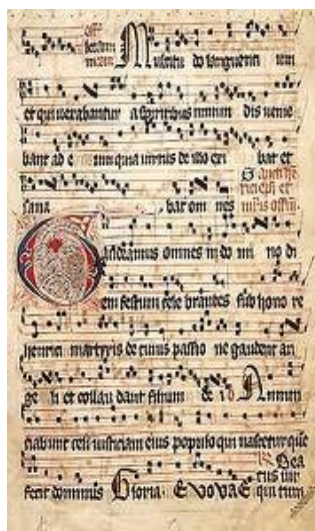 Multitu do languenti um
et qui uexabantur a spiritibus inmun dis uenie
bant ad e um quia uirtus de illo exi bat et
sana bat om nes
Gaudeamus omnes in do mi no di
em festum cele brantes sub hono re
henrici martyris de cuius passio ne gaudent an
ge li et collau dant filium de i Annun
ciabunt celi iusticiam eius populo qui nascetur que
fecit dominus Gloria. EVOVAE Bea
tus uir
qui tim